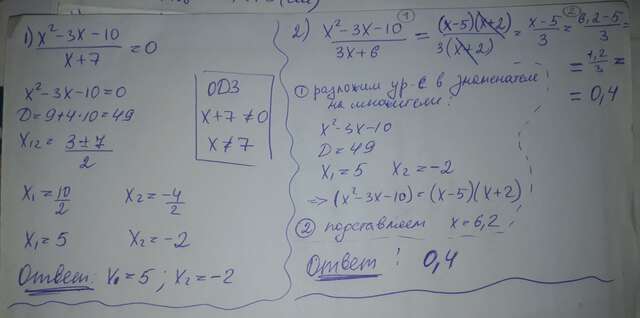 1) x²-3x-10 / x+7 = 0
x²-3x-10=0
D=9+4·10=49
x₁₂= 3±7 / 2
x₁=10/2 x₂=-4/2
x₁=5 x₂=-2
Ответ: x₁=5; x₂=-2
ОДЗ
x+7≠0
x≠7
2) x²-3x-10 / 3x+6 ① = (x-5)(x+2) / 3(x+2) = x-5 / 3 ② = 6,2-5 / 3 =
= 1,2 / 3 =
= 0,4
① разложим ур-е в знаменателе
на множители:
x²-3x-10
D=49
x₁=5 x₂=-2
=> (x²-3x-10)=(x-5)(x+2)
② подставляем x=6,2
Ответ: 0,4